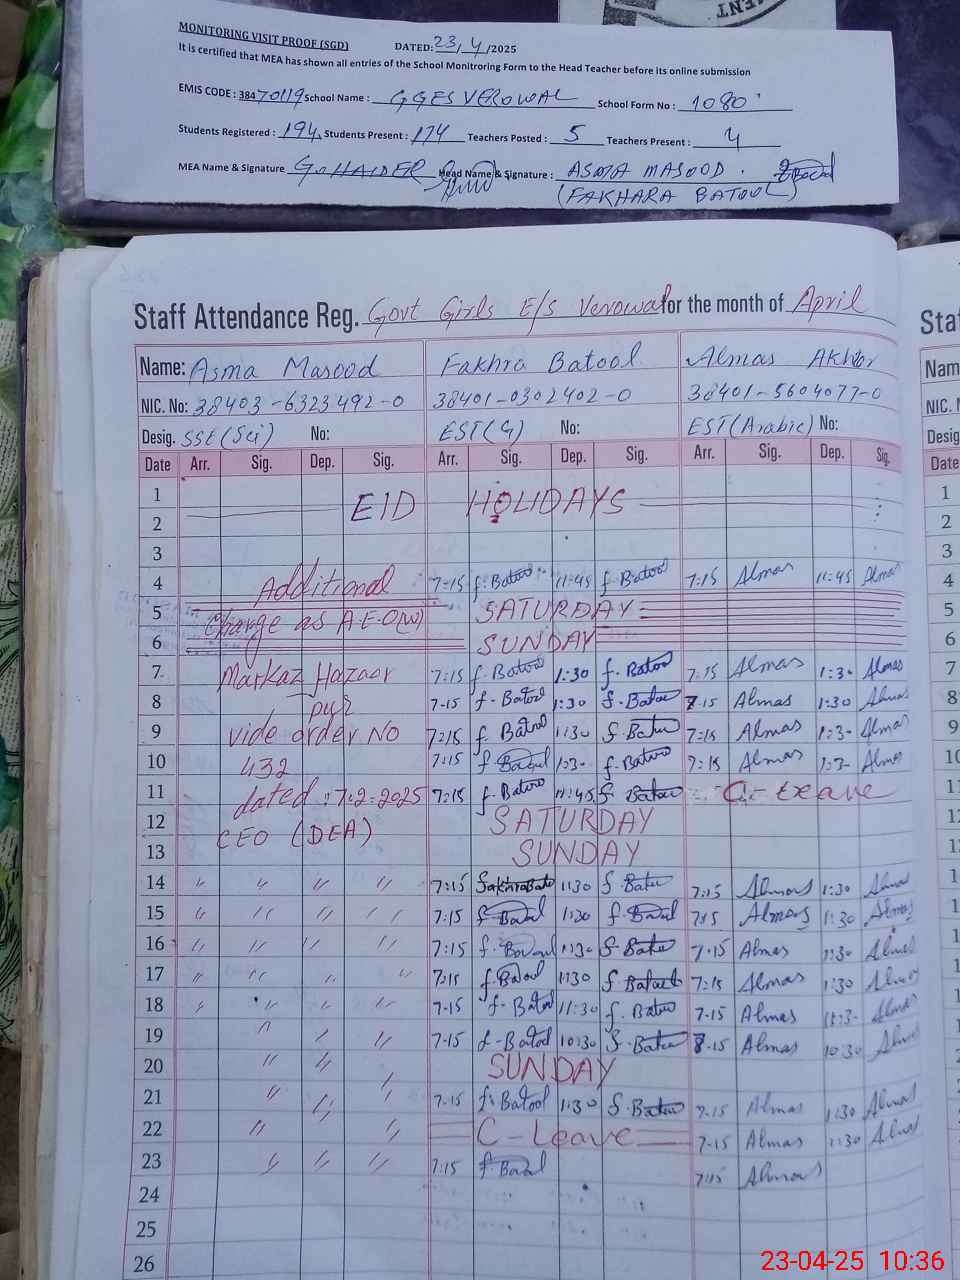 MENT
MONITORING VISIT PROOF (SGD) DATED: 23/4/2025
It is certified that MEA has shown all entries of the School Monitroring Form to the Head Teacher before its online submission
EMIS CODE : 38470119 School Name : GGES VEROWAL School Form No : 1080
Students Registered : 194 Students Present : 174 Teachers Posted : 5 Teachers Present : 4
MEA Name & Signature G. HAIDER Head Name & Signature : ASMA MASOOD.
(FAKHARA BATOOL)
Staff Attendance Reg. Govt Girls E/S Verowal for the month of April
Name: Asma Masood Fakhra Batool Almas Akhtar
NIC. No: 38403-6323492-0 38401-0302402-0 38401-5604077-0
Desig. SST(Sci) No: EST(G) No: EST(Arabic) No:
Date Arr. Sig. Dep. Sig. Arr. Sig. Dep. Sig. Arr. Sig. Dep. Sig.
1
2 EID HOLIDAYS
3
4 Additional 7-15 f. Batool 11:45 f. Batool 7:15 Almas 11:45 Almas
5 Charge as A.E.O(W) SATURDAY
6 SUNDAY
7 Markaz Hazoor 7:15 f. Batool 1:30 f. Batool 7:15 Almas 1:30 Almas
8 pur 7-15 f. Batool 1:30 f. Batool 7-15 Almas 1:30 Almas
9 vide order No 7:15 f. Batool 1:30 f. Batool 7:15 Almas 1:3- Almas
10 432 7:15 f. Batool 1:3- f. Batool 7:15 Almas 1:3- Almas
11 dated: 7.2.2025 7:15 f. Batool 11:45 f. Batool C. Leave
12 CEO (DEA) SATURDAY
13 SUNDAY
14 〃 〃 〃 〃 7:15 Fakhra Batool 1:30 f. Batool 7:15 Almas 1:30 Almas
15 〃 〃 〃 〃 7:15 f. Batool 1:30 f. Batool 7:15 Almas 1:30 Almas
16 〃 〃 〃 〃 7:15 f. Batool 1:30 f. Batool 7-15 Almas 1:30 Almas
17 〃 〃 〃 〃 7:15 f. Batool 1:30 f. Batool 7:15 Almas 1:30 Almas
18 〃 〃 〃 〃 7-15 f. Batool 11:30 f. Batool 7-15 Almas 11:3- Almas
19 〃 〃 〃 7-15 f. Batool 10:30 f. Batool 7-15 Almas 10:30 Almas
20 〃 〃 〃 SUNDAY
21 〃 〃 〃 7-15 f. Batool 1:30 f. Batool 7-15 Almas 1:30 Almas
22 〃 〃 C-Leave 7-15 Almas 1:30 Almas
23 〃 〃 〃 7:15 f. Batool 7:15 Almas
24
25
26
23-04-25 10:36